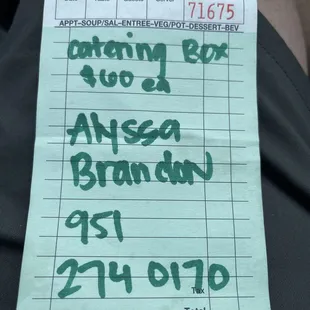 71675
APPT-SOUP/SAL-ENTREE-VEG/POT-DESSERT-BEV
catering Box
$60 ea
Alyssa
Brandon
951
274 0170
Tax
Total